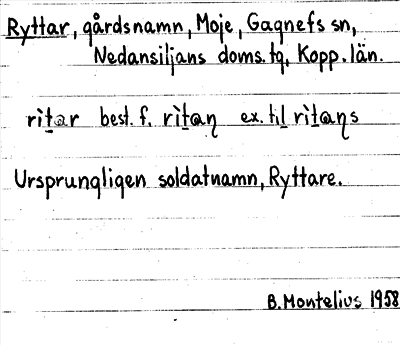 Ryttar, gårdsnamn, Moje, Gagnefs sn,
Nedansiljans doms.tg, Kopp.län.
ritar best. f. rìtaṇ ex. til rìtaṇs
Ursprungligen soldatnamn, Ryttare.
B. Montelius 1958